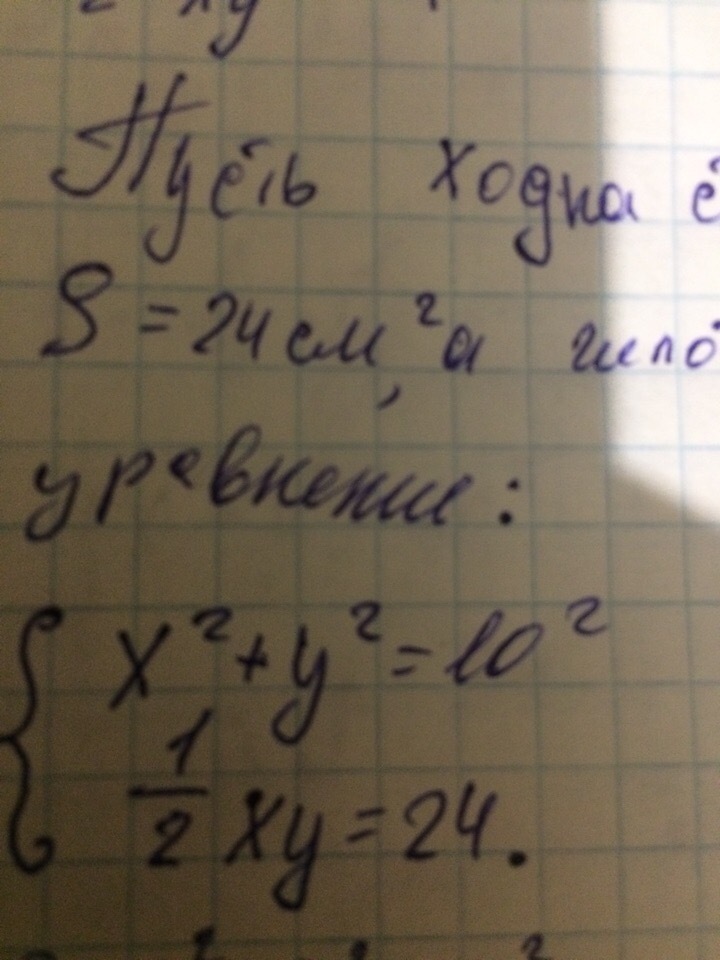 xy
Пусть x одна
S = 24 см², а
уравнение:
{ x² + y² = 10²
1/2 xy = 24.